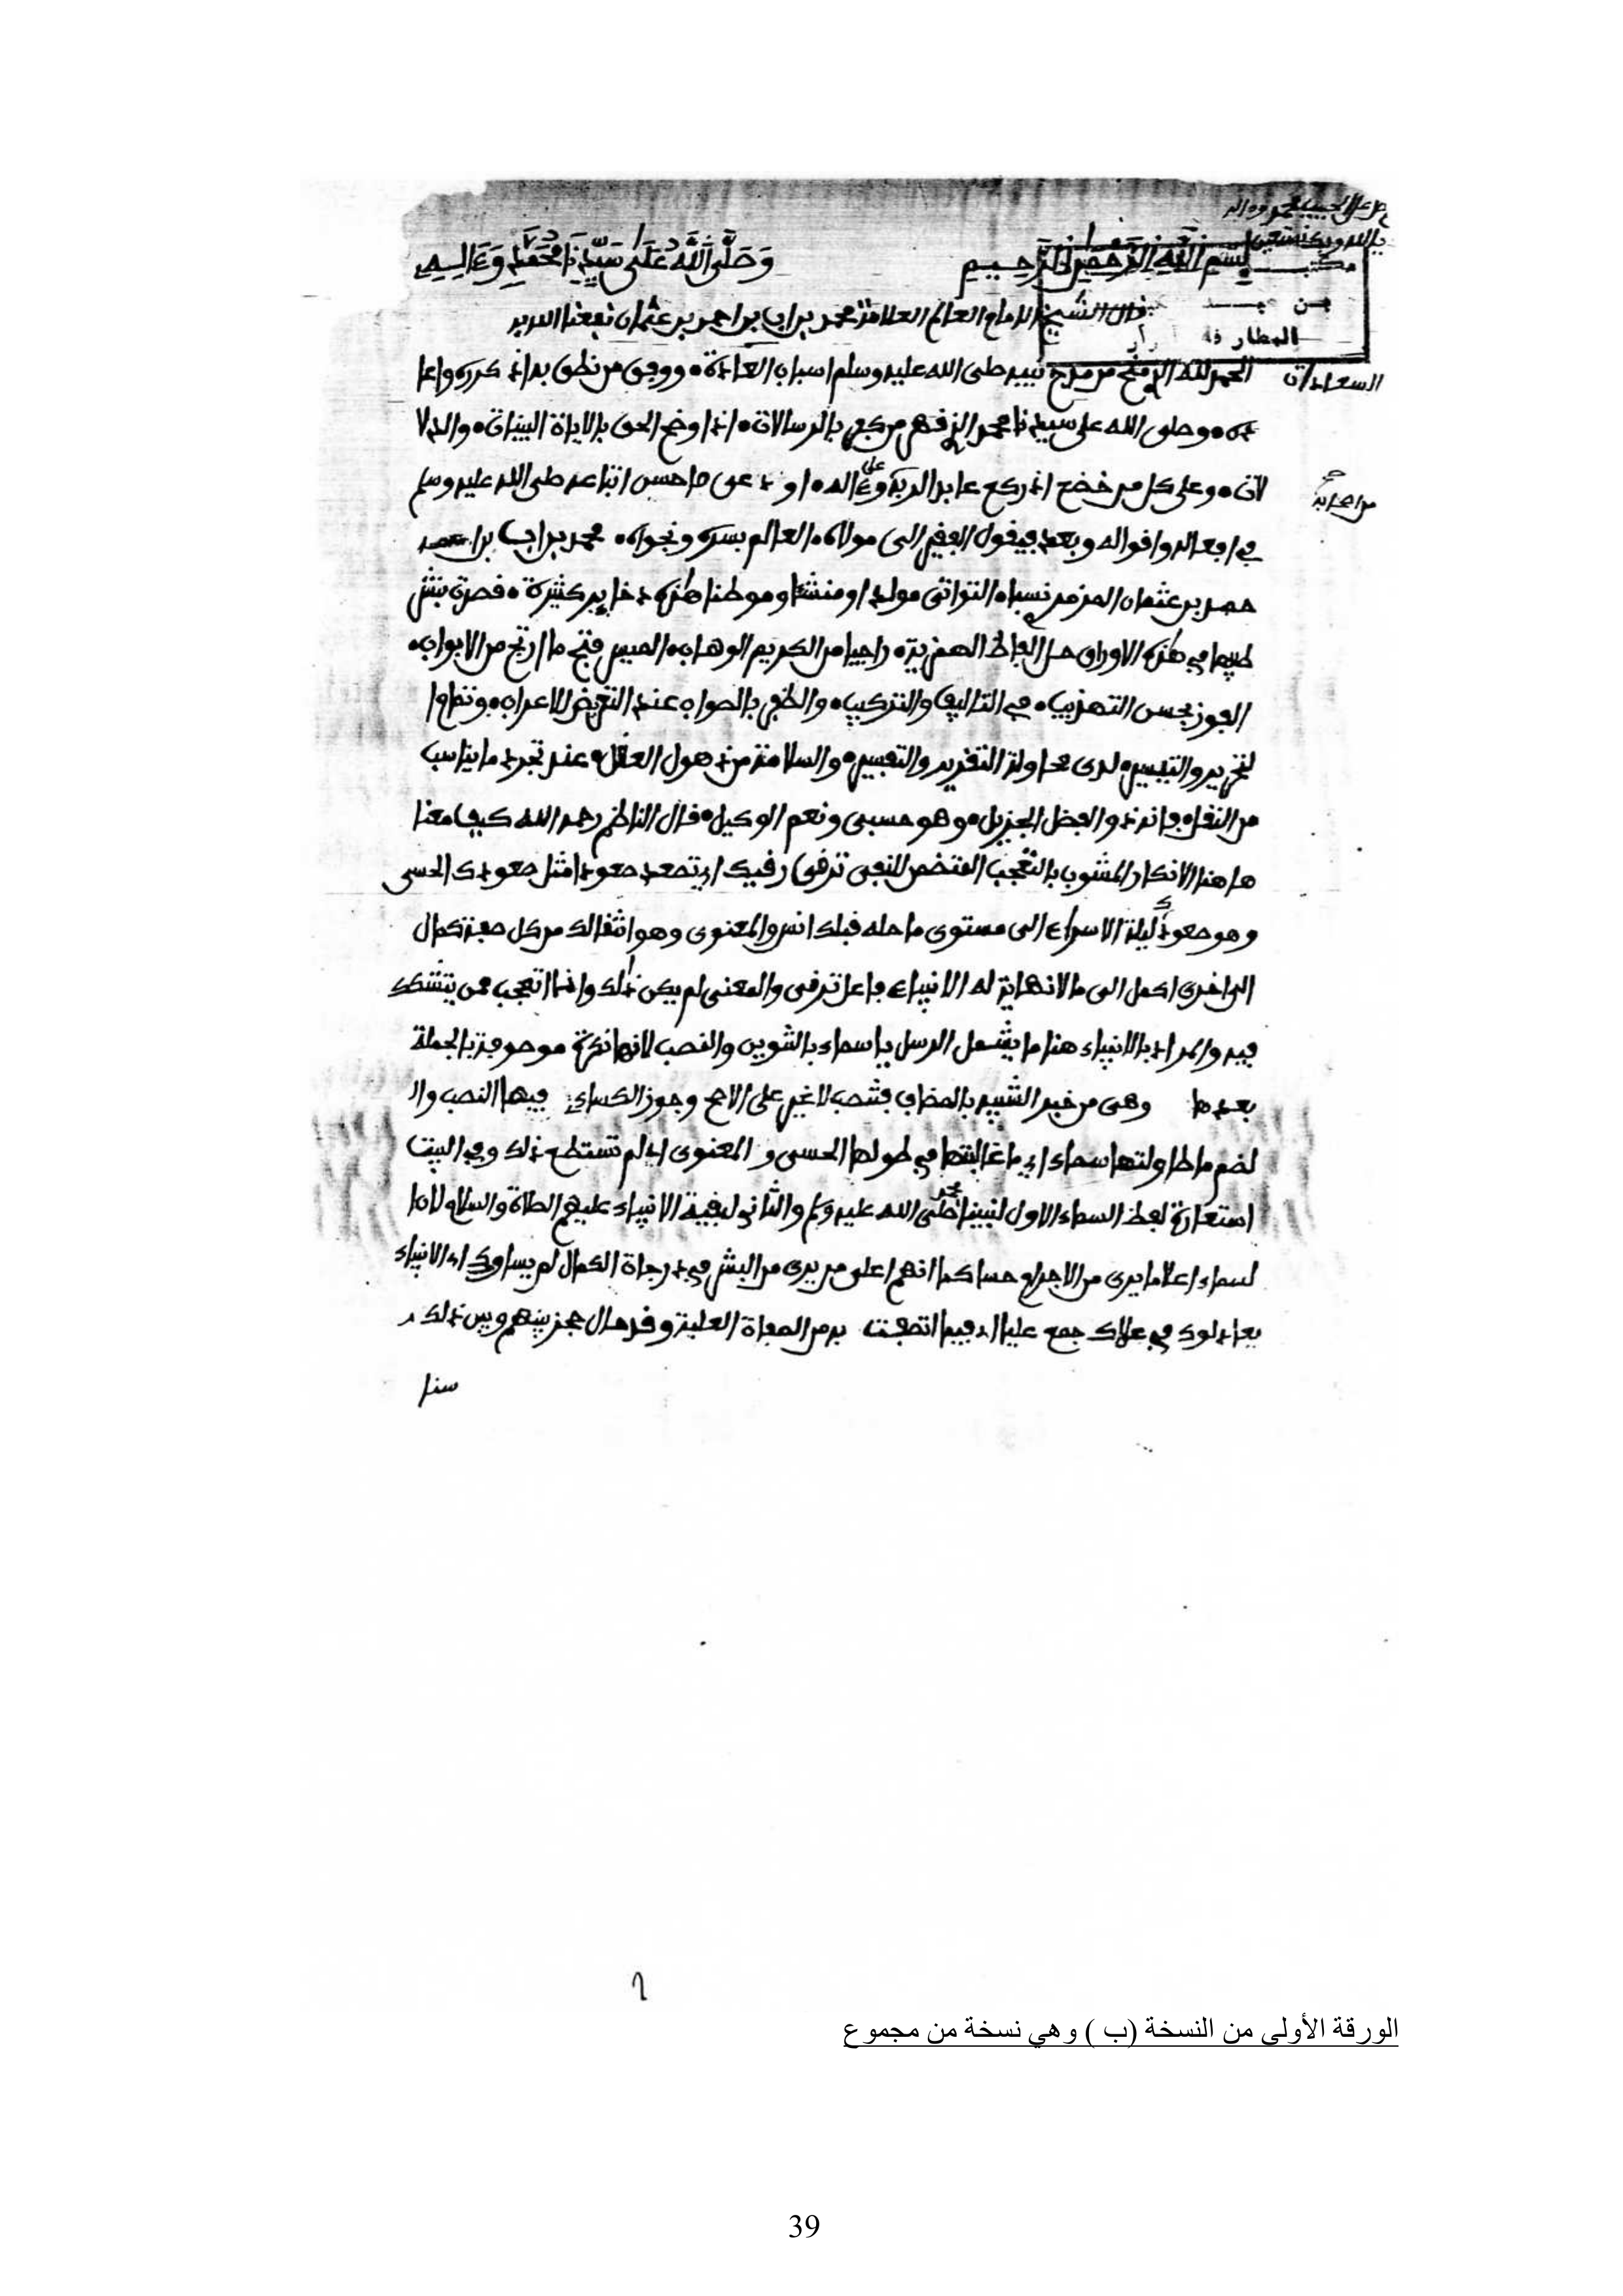 بسم الله الرحمن الرحيم وصلى الله على سيدنا محمد وءاله
قال الشيخ الامام العالم العلامة محمد بن اب بن احمد بن عثمان نفعنا الله به
الحمد لله الذي فتح من مدح نبيه صلى الله عليه وسلم اسباب السعادة ووفق من نطق بذلك كرره واعا
السعادات
ده وصلى الله على سيدنا محمد الذي من بالرسالات اذ اوضح الحق بالايات البينات والدلا
لات وعلى كل من خضع اذ ركع عابد الربه وعلى ءاله او دعى ما حسن اتباعه صلى الله عليه وسلم
من اصحابه
في افعاله واقواله وبعد فيقول الفقير الى مولاه العالم بسره ونجواه محمد بن اب بن
بن عثمان المزمري نسبا التواتي مولدا ومنشئا وموطنا هذه كثيرة قصدت
في هذه الاوراق حل الفاظ الهمزية راجيا من الكريم الوهاب فتح ما ارتج من الابواب
الفوز بحسن التهذيب في التاليف والتركيب والظفر بالصواب عند التعرض للاعراب
لتحرير والتيسير لدى محاولة التقرير والتعبير والسلامة من ذهول العقل عند تجرد ما يناسب
من النقل فانه ذو الفضل الجزيل وهو حسبي ونعم الوكيل قال الناظم رحمه الله كيف معنا
ها هنا الانكار المشوب بالتعجب المتضمن للنفي ترقى رقيك اي تصعد صعودا مثل صعودك الحسي
وهو صعودك ليلة الاسراء الى مستوى ما حله قبلك انس والمعنوي وهو انتقالك من كل صفة كمال
الى اخرى اكمل الى ما لا نهاية له الانبياء فاعل ترقى والمعنى لم يكن ذلك وانما اتعجب ممن يتشكك
فيه والمراد بالانبياء هنا ما يشمل الرسل يا سماء بالتنوين والنصب لانها نكرة موصوفة بالجملة
بعدها وهي من الشبيه بالمضاف فتنصب لا غير على الاصح وجوز الكسائي فيها النصب وا
لضم ما طاولتها سماء اي ما غالبتها في طولها الحسي والمعنوي اي لم تستطع ذلك وفي البيت
استعارة لفظ السماء الاول لنبينا محمد صلى الله عليه وسلم والثاني لبقية الانبياء عليهم الصلاة والسلام لان ا
لسماء اعلا ما يرى من الاجرام حسا كما انهم اعلى من يرى من البشر في درجات الكمال لم يساووك اي الانبياء
يعادلوك في علاك جمع عليا اي فيما اتصفت به من الصفات العلية وقد حال حجز بينهم وبين ذلك
سنا
الورقة الأولى من النسخة (ب ) وهي نسخة من مجموع
39